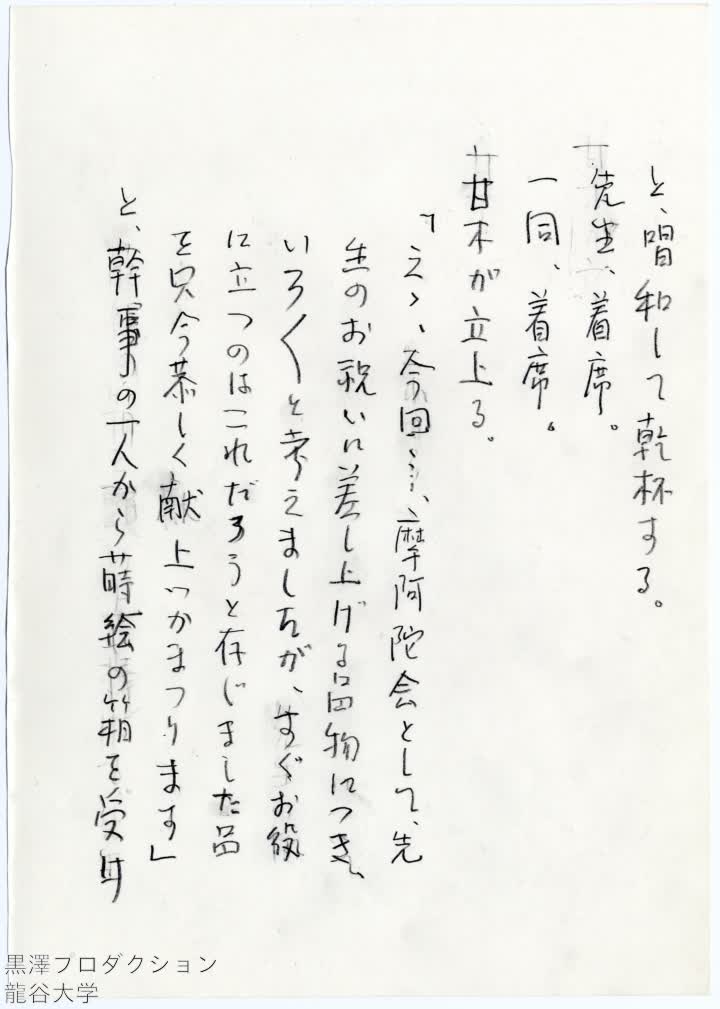 と、唱和して乾杯する。
先生、着席。
一同、着席。
甘木が立上る。
「えゝ、今回……、摩阿陀会として、先
生のお祝いに差し上げる品物につき、
いろ〱と考えましたが、すぐお役
に立つのはこれだろうと存じました品
を只今恭しく献上つかまつります」
と、幹事の一人から蒔絵の箱を受け
黒澤プロダクション
龍谷大学